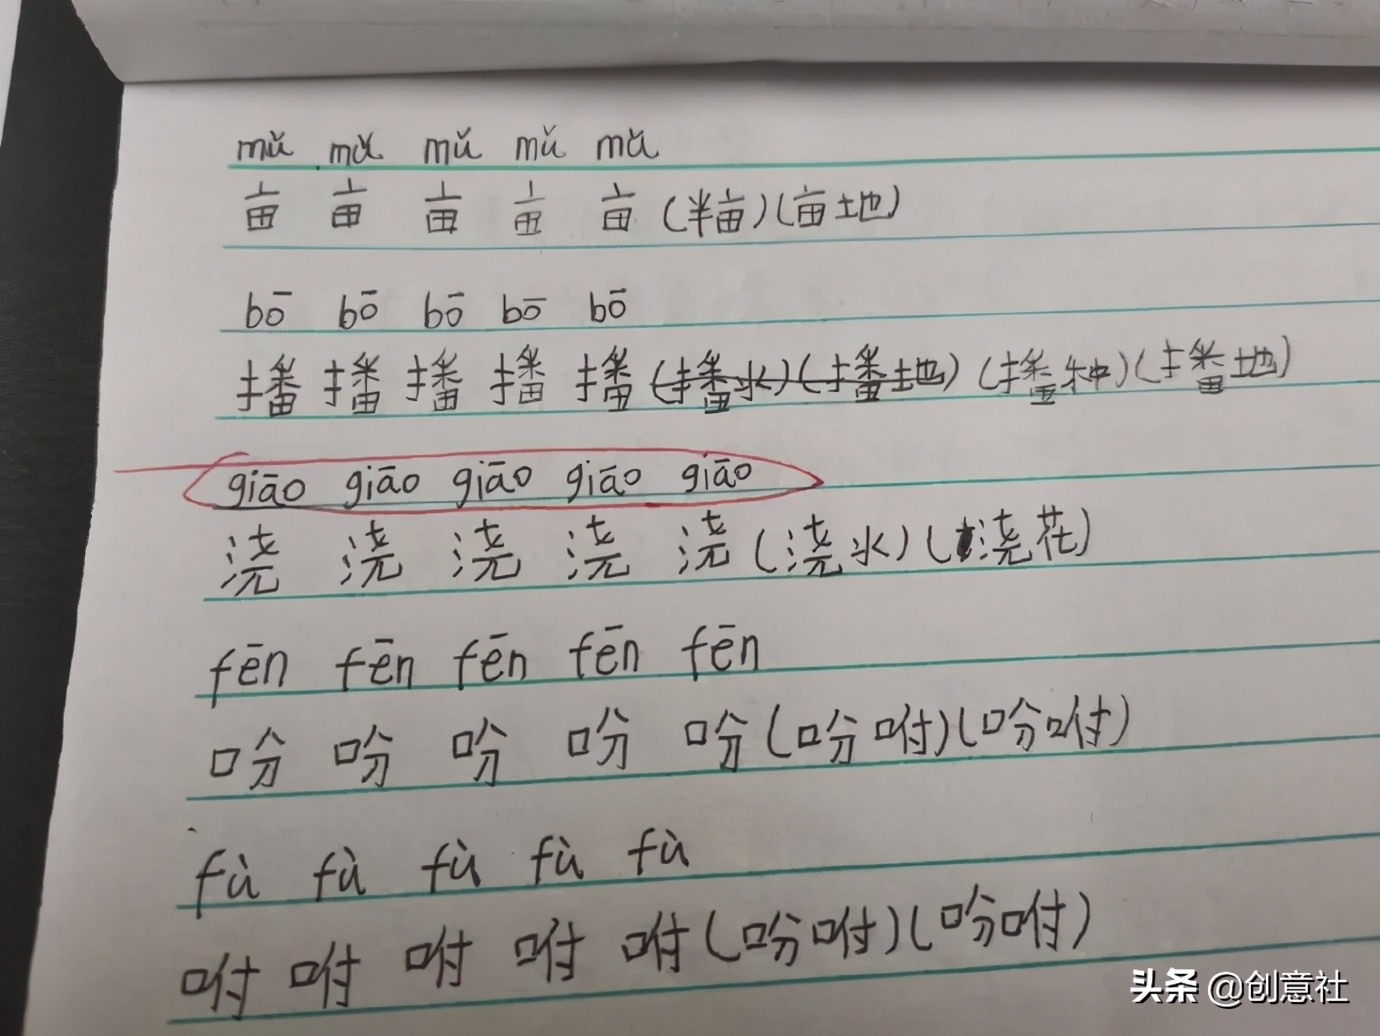 mǔ mǔ mǔ mǔ mǔ
亩 亩 亩 亩 亩 (半亩)(亩土地)
bō bō bō bō bō
播 播 播 播 播 (播水)(播土地)(播种)(播土地)
giāo giāo giāo giāo giāo
浇 浇 浇 浇 浇 (浇水)(浇花)
fēn fēn fēn fēn fēn
吩 吩 吩 吩 吩 (吩咐)(吩咐)
fù fù fù fù fù
咐 咐 咐 咐 咐 (吩咐)(吩咐)
头条 @创意社